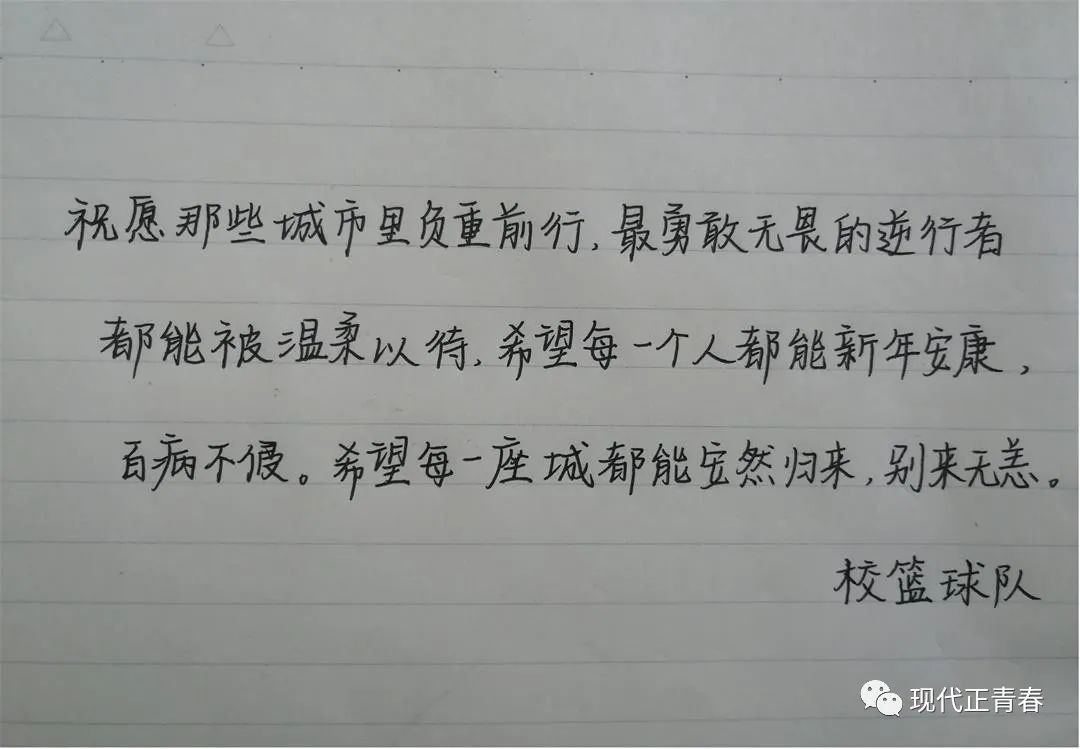 祝愿那些城市里负重前行,最勇敢无畏的逆行者
都能被温柔以待,希望每一个人都能新年安康,
百病不侵。希望每一座城都能安然归来,别来无恙。
校篮球队
现代正青春